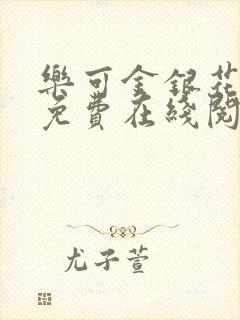 樂可金銀花
免費在綫閱
尤子萱